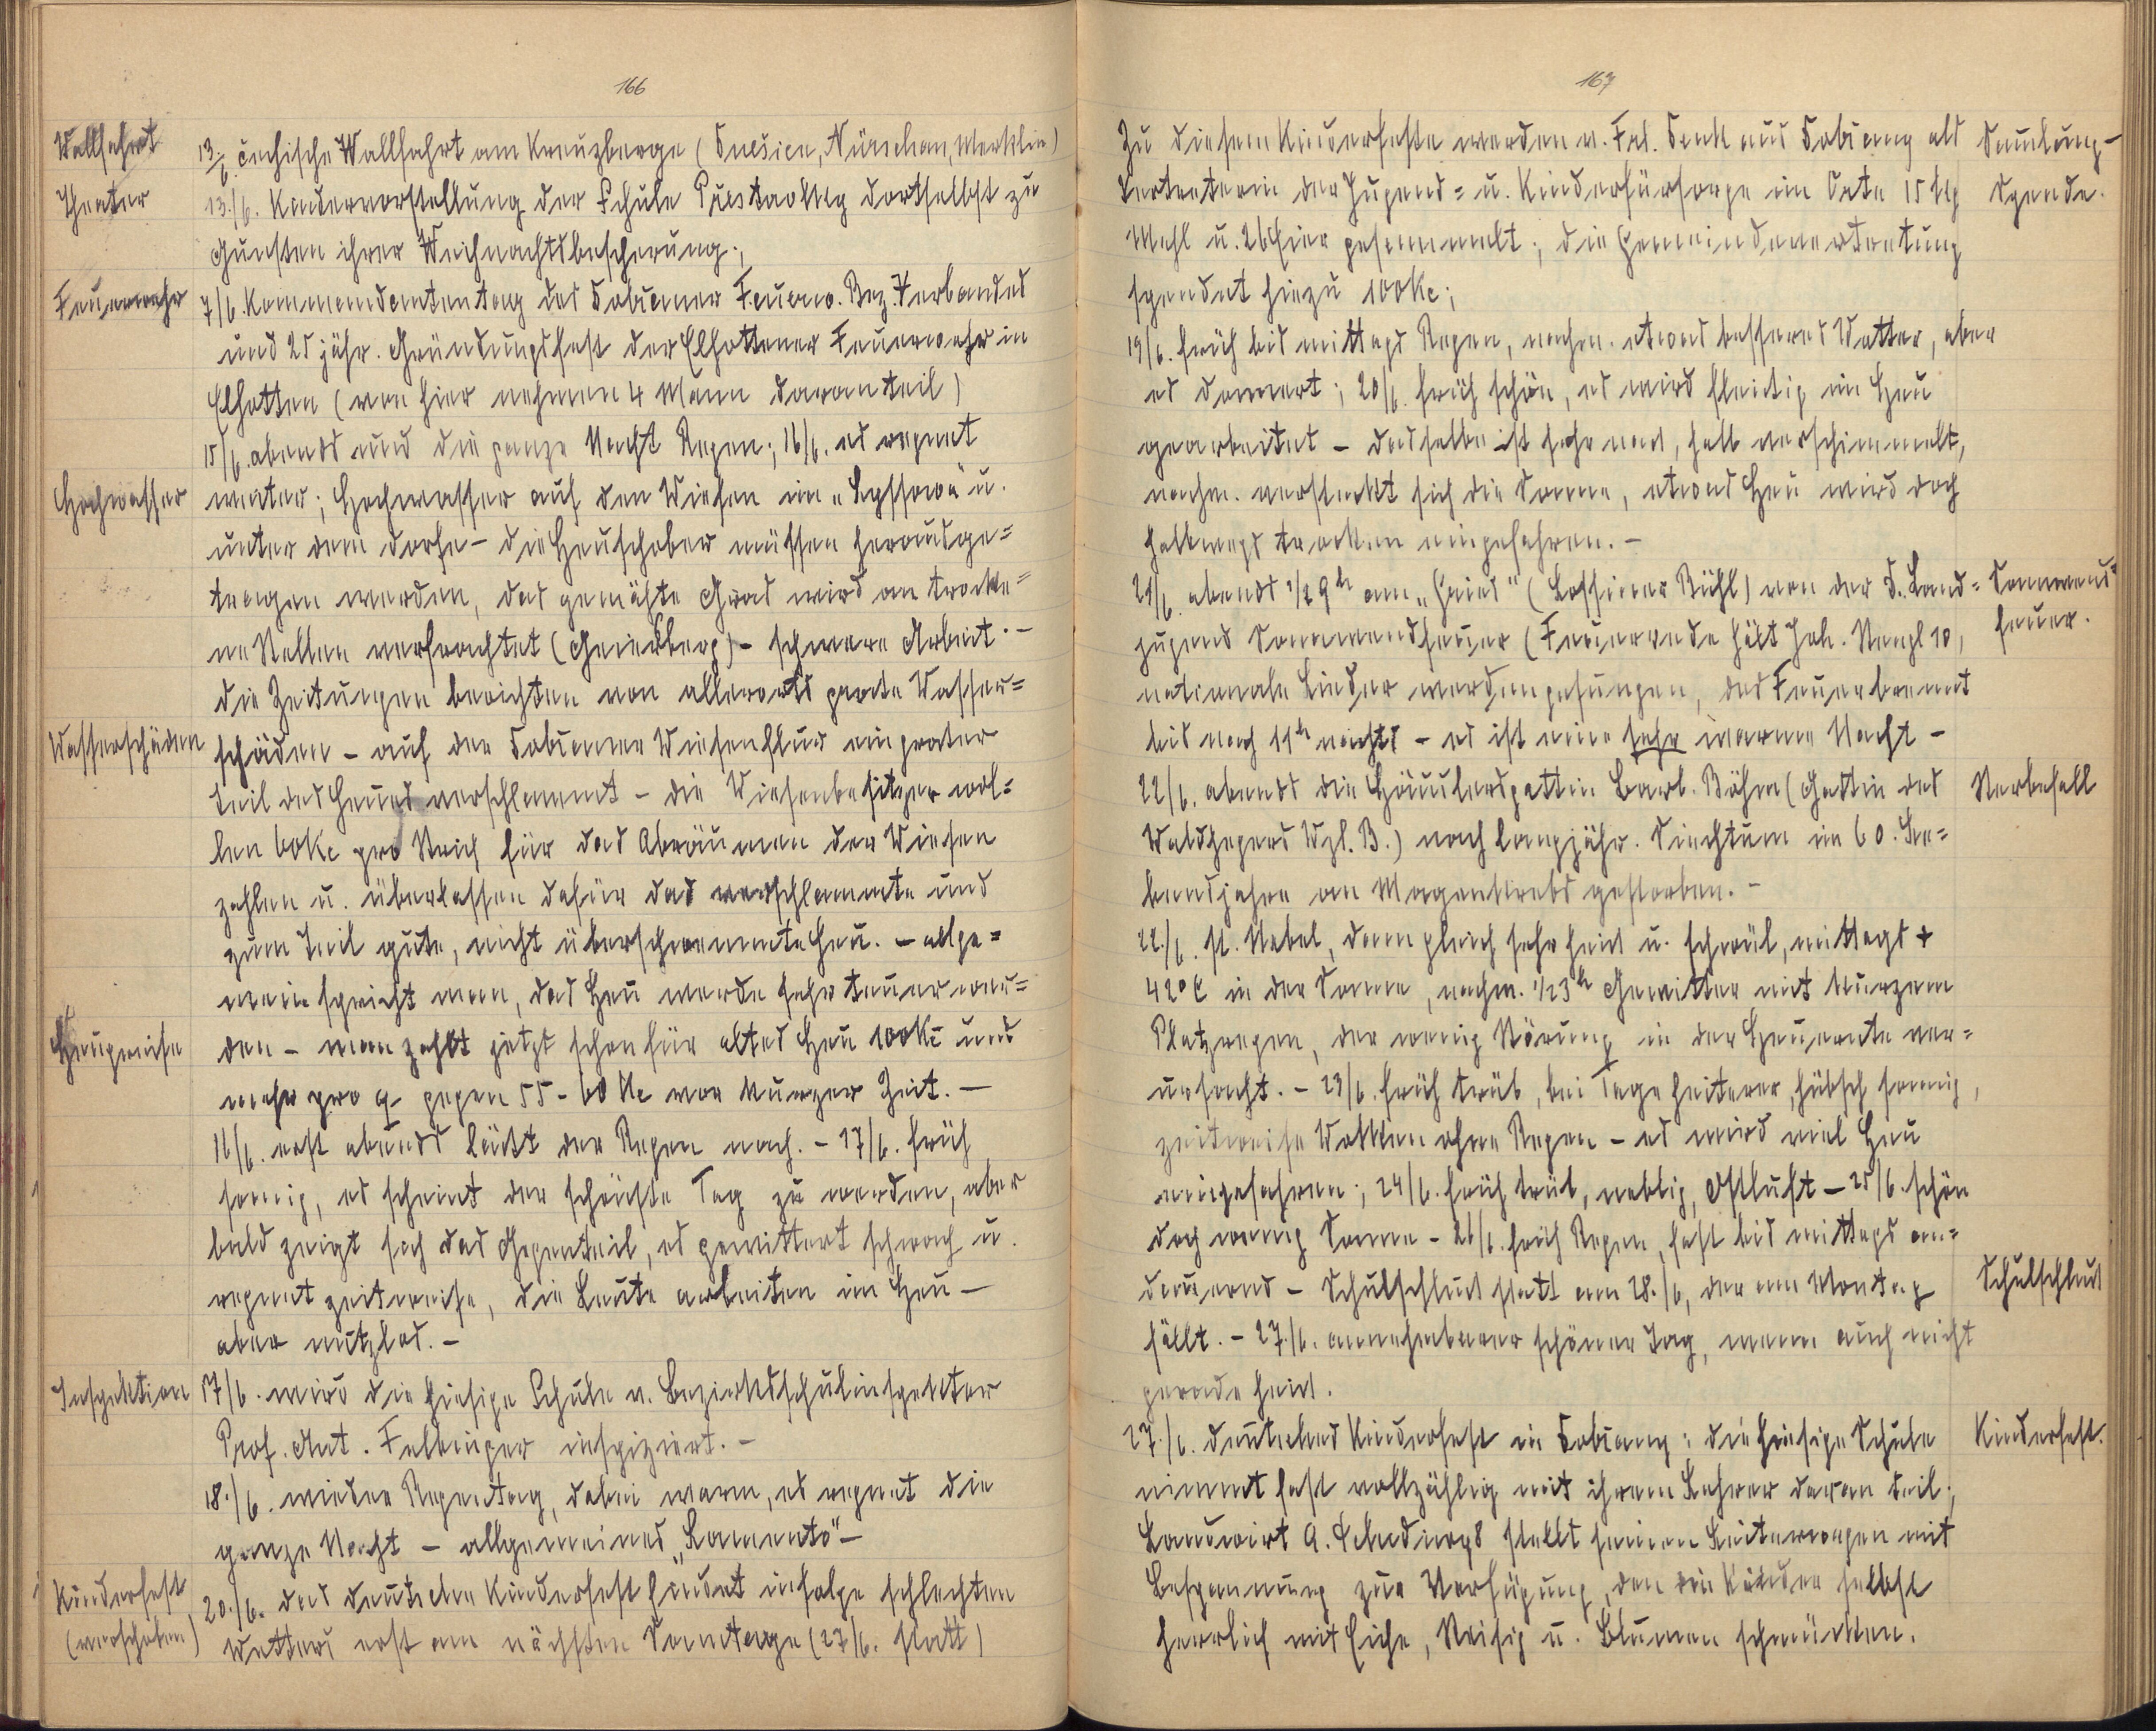 166
Wallfahrt
13/6. čechische Wallfahrt am Kreuzberge (Dnešic, Nürschan, Merklin)
Theater
13./6. Kindervorstellung der Schule Přestavlky dortselbst zu
Gunsten ihrer Weihnachtsbescherung;
Feuerwehr
7/6. Kommandantentag des Dobřaner Feuerw. Bez. Verbandes
und 25 jähr. Gründungsfest der Elhottener Feuerwehr in
Elhotten (von hier nehmen 4 Mann daran teil)
15/6. abends und die ganze Nacht Regen; 16/6. es regnet
Hochwasser
weiter; Hochwasser auf den Wiesen in „Lyssowa" u.
unter dem Dorfe - die Heuschober müssen herausge=
tragen werden, das gemähte Gras wird an trocke=
ne Stellen verfrachtet (Geierberg) - schwere Arbeit. -
die Zeitungen berichten von allerorts große Wasser=
Wasserschäden
schäden - auf der Dobřaner Wiesenflur ein großer
Teil des Heues verschlammt - die Wiesenbesitzer wol=
len 60 Kc pro Strich für das Abräumen der Wiesen
zahlen u. überlassen dafür das verschlammte und
zum Teil gute, nicht überschwemmte Heu. - allge=
mein spricht man, das Heu werde sehr teuer wer=
Heupreise
den - man zahlt jetzt schon für altes Heu 100 Kč und
mehr pro q gegen 55 - 60 Kc vor kurzer Zeit. -
16/6. erst abends läßt der Regen nach. - 17/6. früh
sonnig, es scheint der schönste Tag zu werden, aber
bald zeigt sich das Gegenteil, es gewittert schwach u.
regnet zeitweise, die Leute arbeiten im Heu -
aber nutzlos. -
Inspektion
17/6. wird die hiesige Schule v. Bezirksschulinspektor
Prof. Ant. Felbinger inspiziert. -
18./6. wieder Regentag, dabei warm, es regnet die
ganze Nacht - allgemeines „Lamento" -
Kinderfest
(verschoben)
20./6. das deutsche Kinderfest findet infolge schlechten
Wetters erst am nächsten Sonntage (27/6. statt)
167
Zu diesem Kinderfeste werden v. Frl. Senk aus Dobřany als
Sammlung-
Spende.
Vertreterin der Jugend= u. Kinderfürsorge im Orte 15 kg
Mehl u. 26 Eier gesammelt; die Gemeindevertretung
spendet hiezu 100 Kc;
19/6. früh bis mittags Regen, nachm. etwas besseres Wetter, aber
es donnert; 20/6. früh schön, es wird fleißig im Heu
gearbeitet - dasselbe ist sehr naß, halb verschimmelt,
nachm. versteckt sich die Sonne, etwas Heu wird doch
halbwegs trocken eingefahren. -
21/6. abends ½ 9 h am „Gries" (Lossiner Bühl) von der d. Land=
Sonnwend=
feuer.
jugend Sonnwendfeuer (Feuerrede hält Joh. Stengl 10,
nationale Lieder werden gesungen, das Feuer brennt
bis nach 11 h nachts - es ist eine sehr warme Nacht -
22/6. abends die Häuslersgattin Barb. Böhm (Gattin des
Sterbefall
Waldhegers Wzl. B.) nach langjähr. Siechtum im 60. Le=
bensjahre an Magenkrebs gestorben. -
22./6. fr. Nebel, dann gleich sehr heiß u. schwül, mittags +
42° C in der Sonne, nachm. ½ 3 h Gewitter mit kurzem
Platzregen, der wenig Störung in der Heuernte ver=
ursacht. - 23/6. früh trüb, bei Tage heiterer, hübsch sonnig,
zeitweise Wolken ohne Regen - es wird viel Heu
eingefahren; 24/6. früh trüb, neblig, Ostluft - 25/6. schön
doch wenig Sonne - 26/6. früh Regen, fast bis mittags an=
dauernd - Schulschluß statt am 28./6, der am Montag
Schulschluß
fällt. - 27./6. annehmbarer schöner Tag, wenn auch nicht
gerade heiß.
27./6. deutsches Kinderfest in Dobřany; die hiesige Schule
Kinderfest.
nimmt fast vollzählig mit ihrem Lehrer daran teil;
Landwirt A. 8 stellt seinen Leiterwagen mit
Bespannung zur Verfügung, den die Kinder selbst
herrlich mit Eiche, Reisig u. Blumen schmücken.